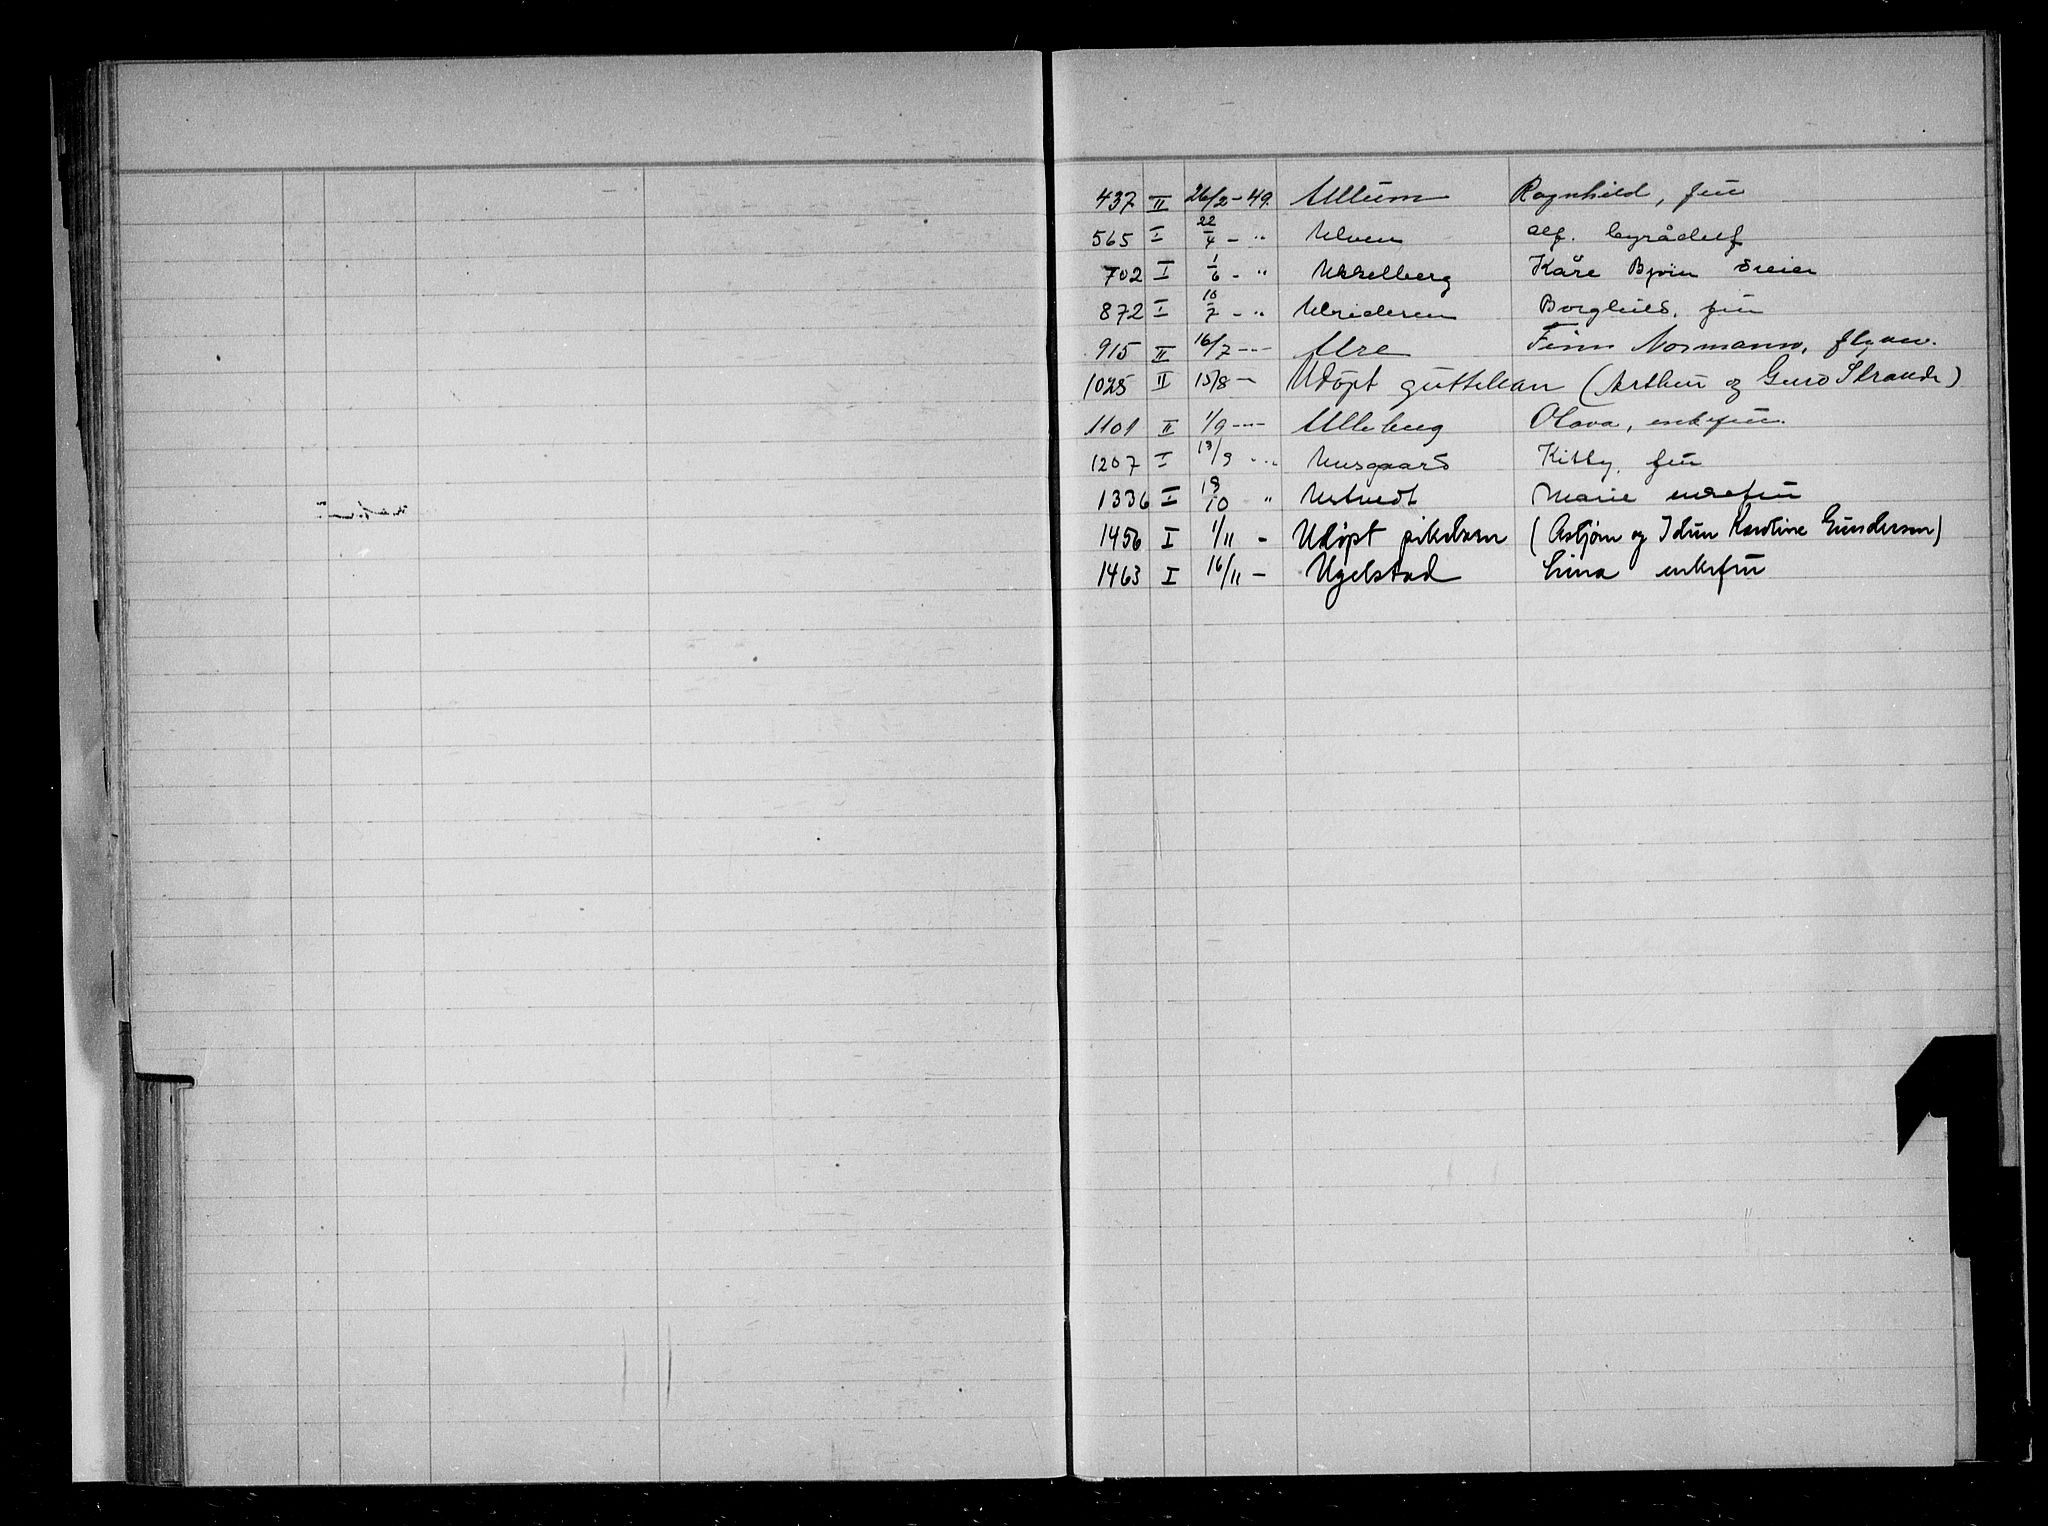 437 II 26/2-49. Ullum Ragnhild, frü
565 I 22/4 - " Ulven Alf. byrådelf
702 I 1/6 - " Usselberg Kåre Bjørn dreier
872 I 10/7 - " Ulridsen Borghild, frü
915 II 16/7 --- Ure Finn Normann, flyver.
1025 II 15/8 — Udöpt guttebarn (Arthur og Guro Strande)
1101 II 1/9 ---- Ulleberg Olava, enkefrü.
1207 I 13/9 - ... Kitty, frü
1336 I 18/10 " Ustvedt Marie enkefrü
1456 I 1/11 - Udöpt pikebarn (Asbjörn og Idun Karoline Gundersen)
1463 I 16/11 - Ugelstad Lina enkefrü